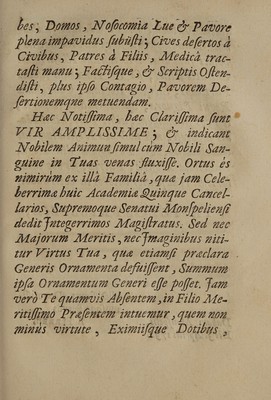 bes, Domos, Nosocomia Lue & Pavore
plena impavidus subiisti; Cives desertos à
Civibus, Patres à Filiis, Medicâ trac-
tasti manu; Factisque, & Scriptis Osten-
disti, plus ipso Contagio, Pavorem De-
sertionemque metuendam.
Hæc Notissima, hæc Clarissima sunt
VIR AMPLISSIME; & indicant
Nobilem Animum simul cùm Nobili San-
guine in Tuas venas fluxisse. Ortus ès
nimirùm ex illâ Familiâ, quæ jam Cele-
berrimæ huic Academiæ Quinque Cancel-
larios, Supremoque Senatui Monspeliensi
dedit Integerrimos Magistratus. Sed nec
Majorum Meritis, nec Imaginibus niti-
tur Virtus Tua, quæ etiamsi præclara
Generis Ornamenta defuissent, Summum
ipsa Ornamentum Generi esse posset. Jam
verò Te quamvis Absentem, in Filio Me-
ritissimo Præsentem intuemur, quem non
minùs virtute, Eximiisque Dotibus,